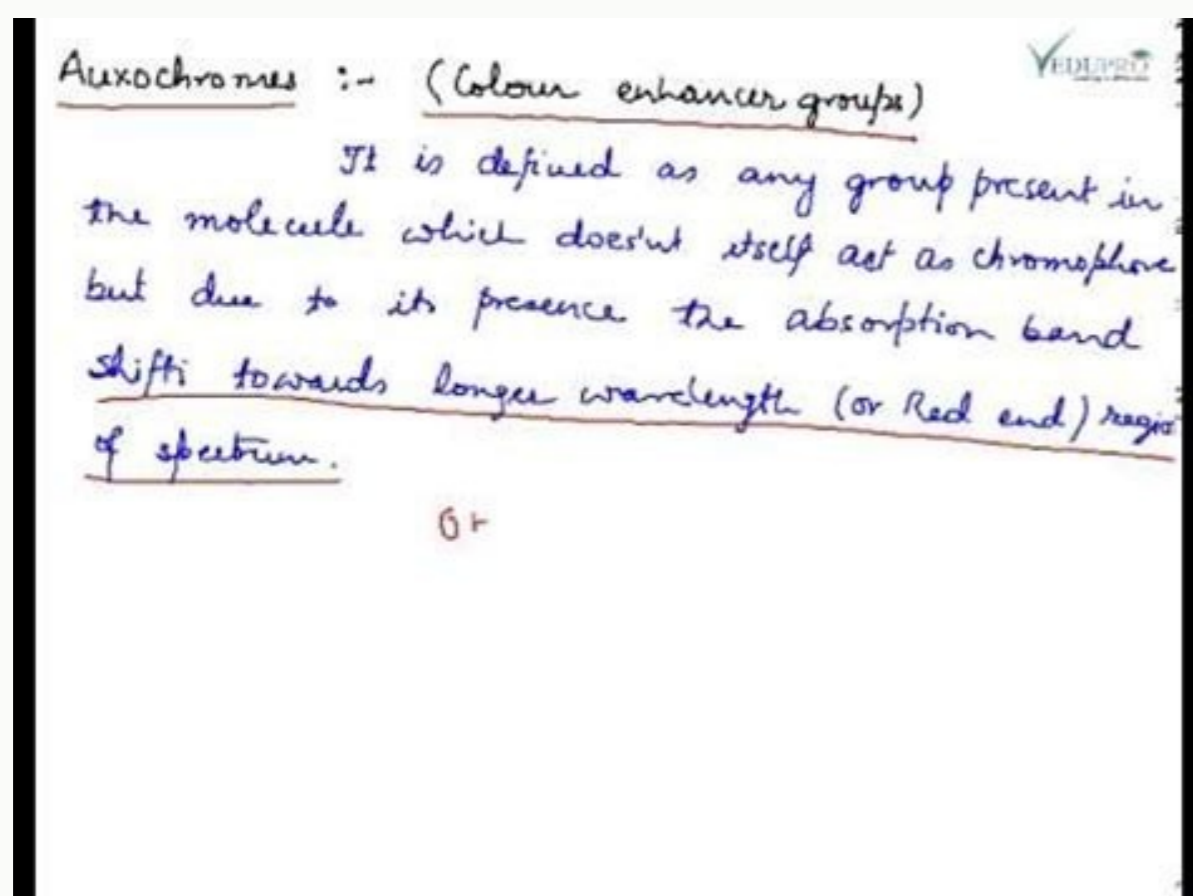 Auxochromes :- (Colour enhancer groups)
VEDUPRO
It is defined as any group present in
the molecule which does'nt itself act as chromophore
but due to its presence the absorption band
shifts towards longer wavelength (or Red end) regio
of spectrum.
Or